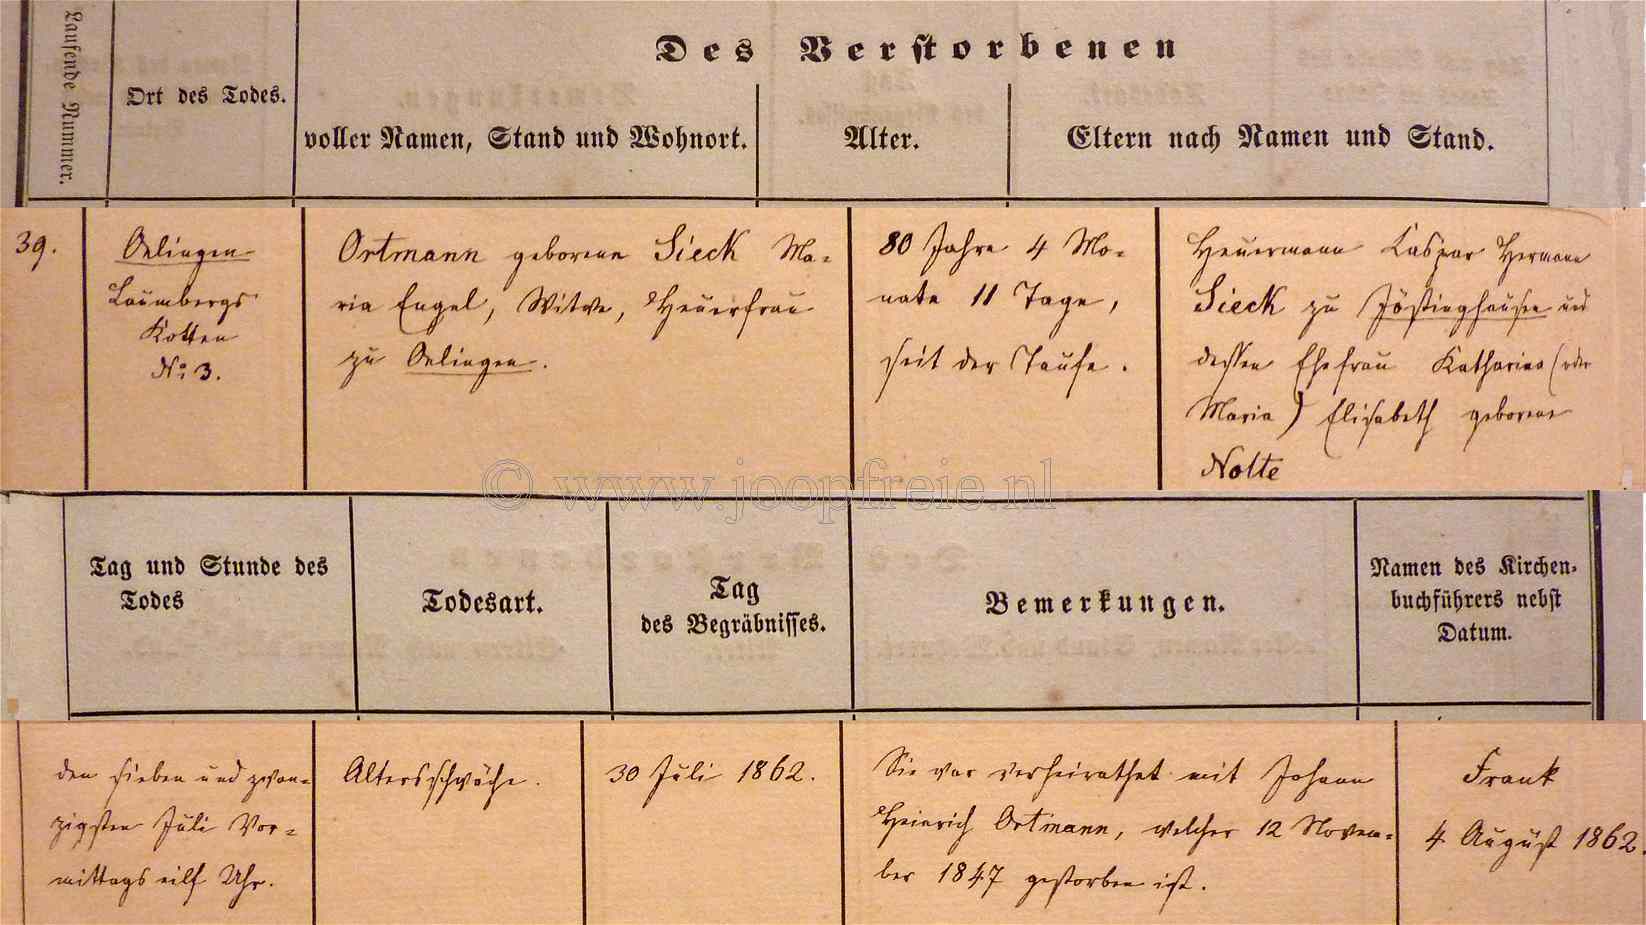 Laufende Nummer.
Ort des Todes.
Des Verstorbenen
voller Namen, Stand und Wohnort.
Alter.
Eltern nach Namen und Stand.
39.
Oelingen
Laumbergs
Kotten
No 3.
Ortmann geborene Sieck Ma-
ria Engel, Witwe, Heuerfrau
zu Oelingen.
80 Jahre 4 Mo-
nate 11 Tage,
seit der Taufe.
Heuermann Kaspar Hermann
Sieck zu Jöstinghausen und
dessen Ehefrau Katharina (oder
Maria) Elisabeth geborene
Nolte
© www.joopfreie.nl
Tag und Stunde des
Todes
Todesart.
Tag
des Begräbnisses.
Bemerkungen.
Namen des Kirchen-
buchführers nebst
Datum.
den sieben und zwan-
zigsten Juli Vor-
mittags eilf Uhr.
Altersschwäche.
30 Juli 1862.
Sie war verheirathet mit Johann
Heinrich Ortmann, welcher 12 Novem-
ber 1847 gestorben ist.
Frank
4. August 1862.